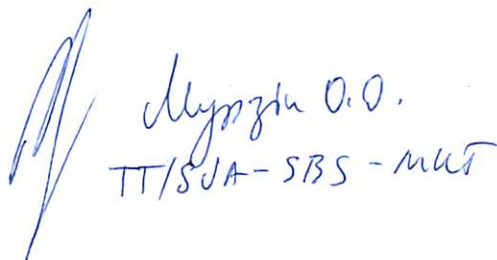 Мурзін О.О.
TT/SUA-SBS-MKT